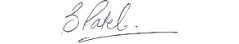 S Patel.